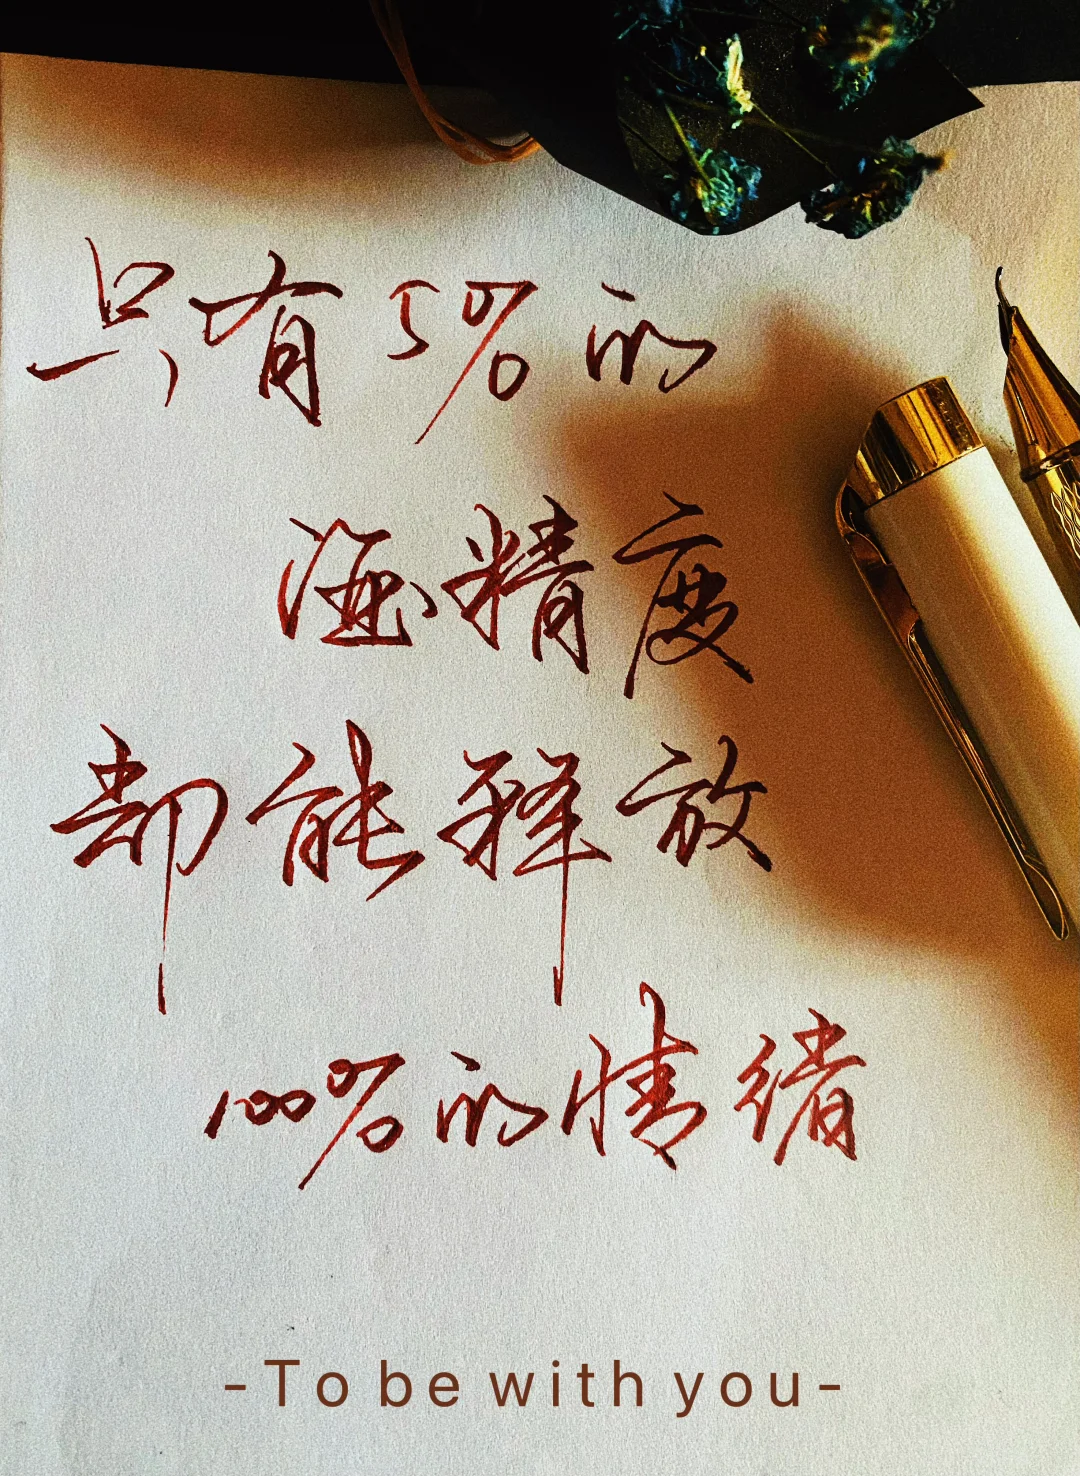 只有5%的
酒精度
却能释放
100%的情绪
-To be with you-